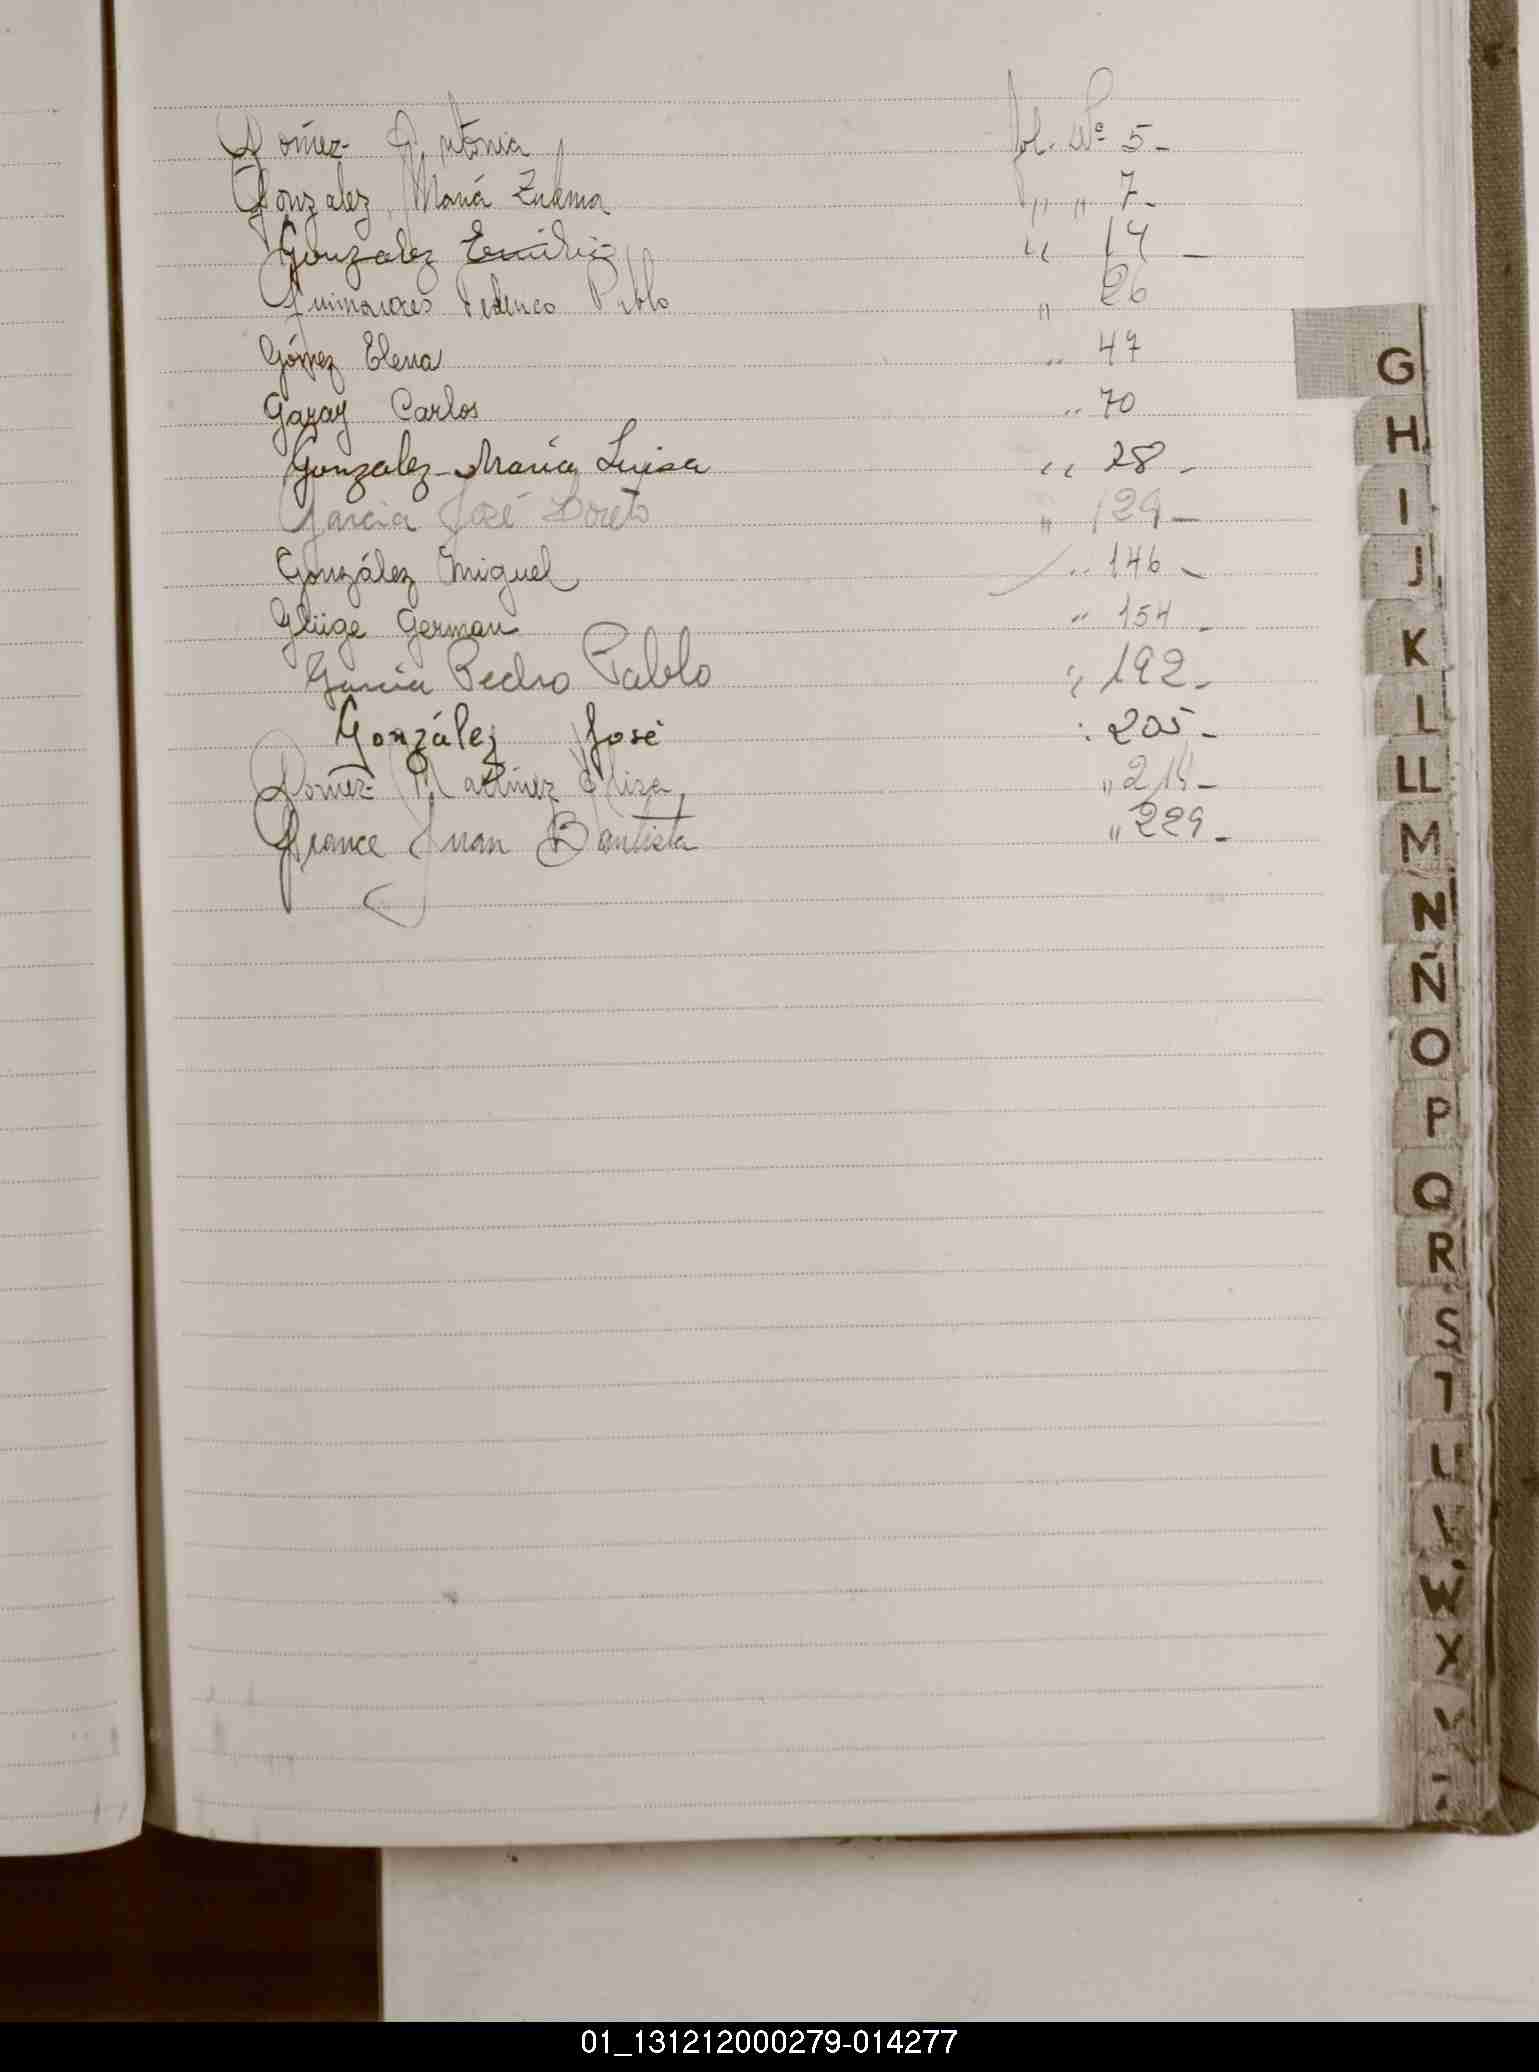 Goméz Antonia Fol. Nº 5-
Gonzalez Maria Zulema " " 7-
Gonzalez Emilio " 14 -
Guimaraes Federico Pablo " 26
Gómez Elena " 47
Garay Carlos " 70
Gonzalez María Luisa " 28 -
Garcia José Loreto " 129 -
González Miguel " 146 -
Glüge German " 154 -
García Pedro Pablo " 192 -
González José : 205 -
Goméz Martínez Elisa " 214 -
Grance Juan Bautista " 229 -
G
H
I
J
K
L
LL
M
N
Ñ
O
P
Q
R
S
T
U
V
W
X
Y
01_131212000279-014277